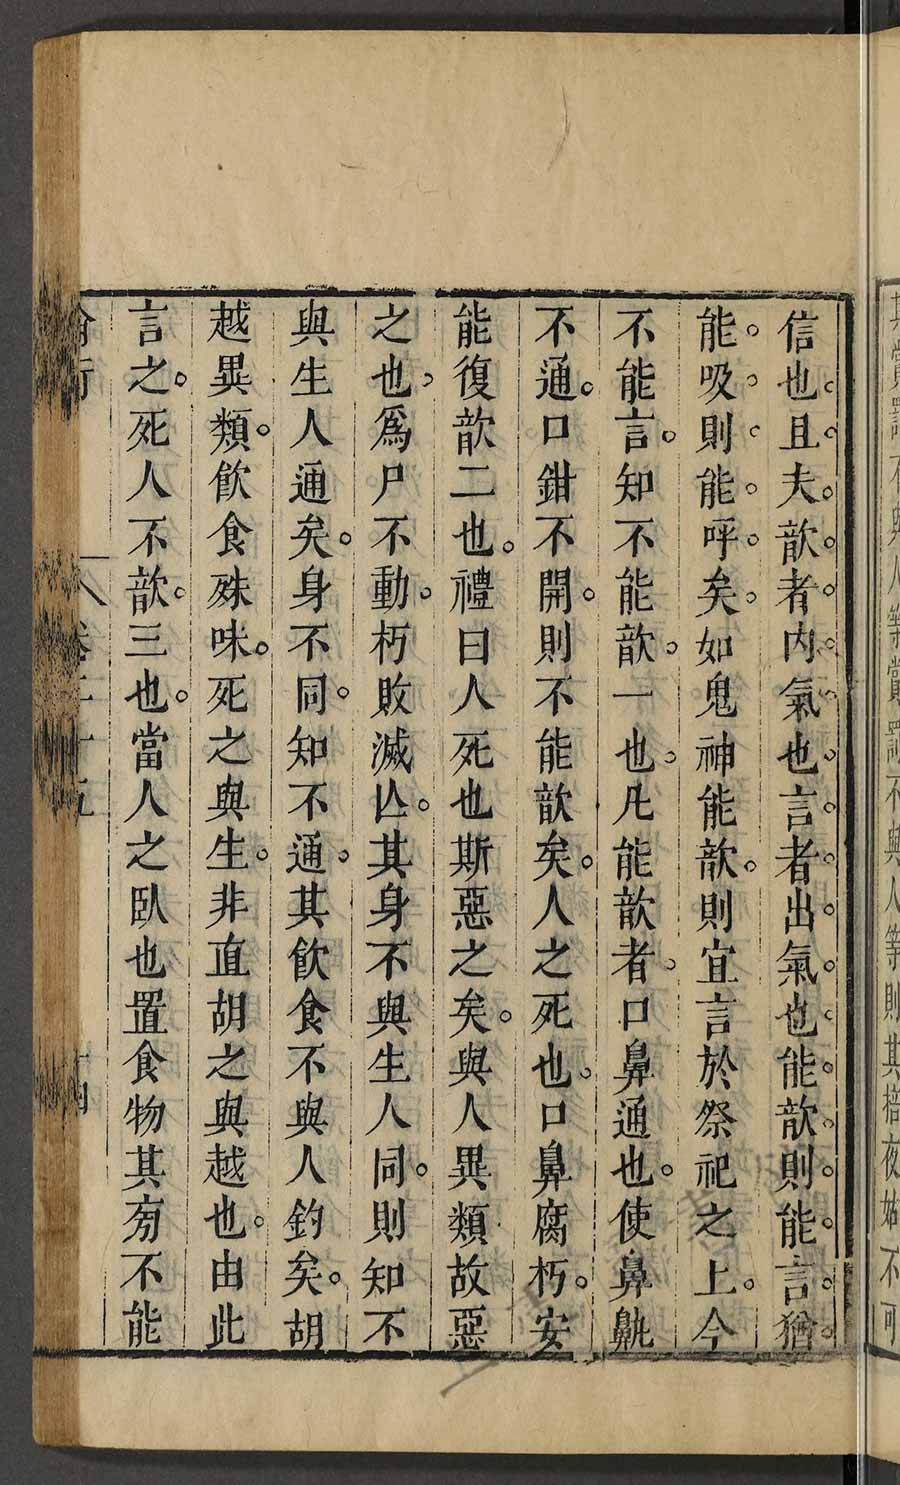 信也且夫歆者內氣也言者出氣也能歆則能言猶
能吸則能呼矣如鬼神能歆則宜言於祭祀之上今
不能言知不能歆一也凡能歆者口鼻通也使鼻鼽
不通口鉗不開則不能歆矣人之死也口鼻腐朽安
能復歆二也禮曰人死也斯惡之矣與人異類故惡
之也爲尸不動朽敗滅亾其身不與生人同則知不
與生人通矣身不同知不通其飲食不與人鈞矣胡
越異類飲食殊味死之與生非直胡之與越也由此
言之死人不歆三也當人之臥也置食物其旁不能